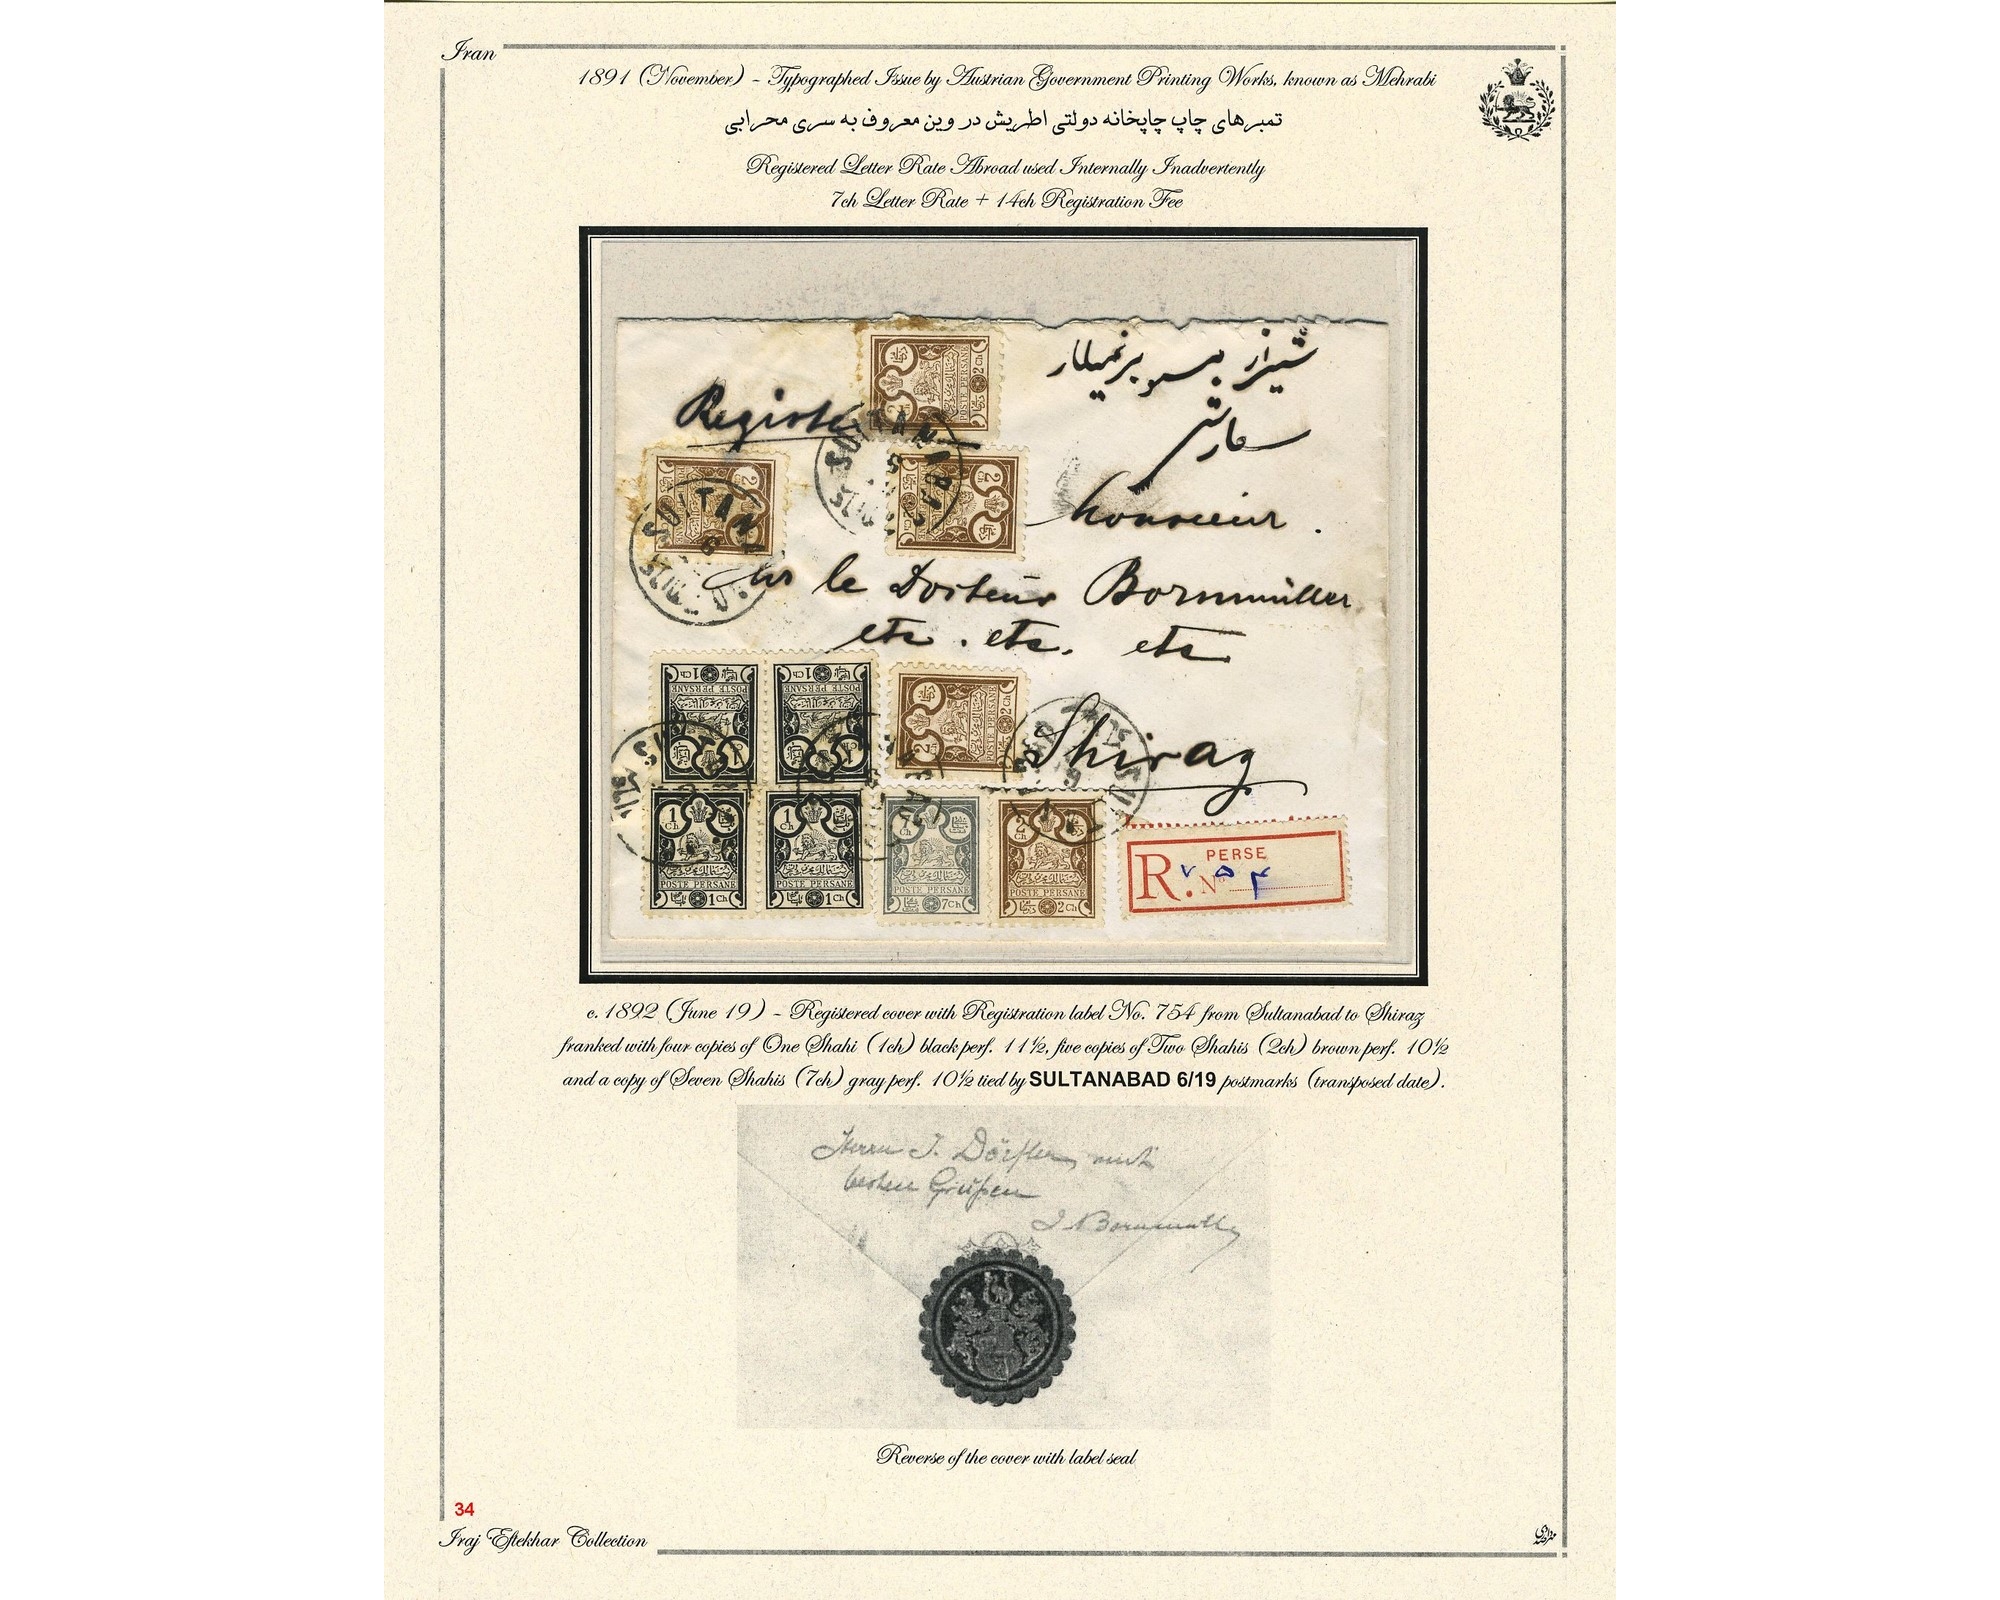 Iran
1891 (November) - Typographed Issue by Austrian Government Printing Works, known as Mehrabi
تمبرهای چاپ چاپخانه دولتی اطریش در وین معروف به سری محرابی
Registered Letter Rate Abroad used Internally Inadvertently
7ch Letter Rate + 14ch Registration Fee
شیراز
سفارشی
Registe
Monsieur
le Docteur Bornmüller
etc. etc. etc
Shiraz
SULTANABAD
SULTANA
POSTE PERSANE
2 Ch
POSTE PERSANE
POSTE PERSANE
1 Ch
1 Ch
7 Ch
2 Ch
POSTE PERSANE
POSTE PERSANE
POSTE PERSANE
POSTE PERSANE
1 Ch
1 Ch
7 Ch
2 Ch
PERSE
R. No ۷۵۴
c. 1892 (June 19) - Registered cover with Registration label No. 754 from Sultanabad to Shiraz
franked with four copies of One Shahi (1ch) black perf. 11½, five copies of Two Shahis (2ch) brown perf. 10½
and a copy of Seven Shahis (7ch) gray perf. 10½ tied by SULTANABAD 6/19 postmarks (transposed date).
Herrn J. Dörfler, mit
besten Grüßen
J. Bornmüller
Reverse of the cover with label seal
34
Iraj Eftekhar Collection